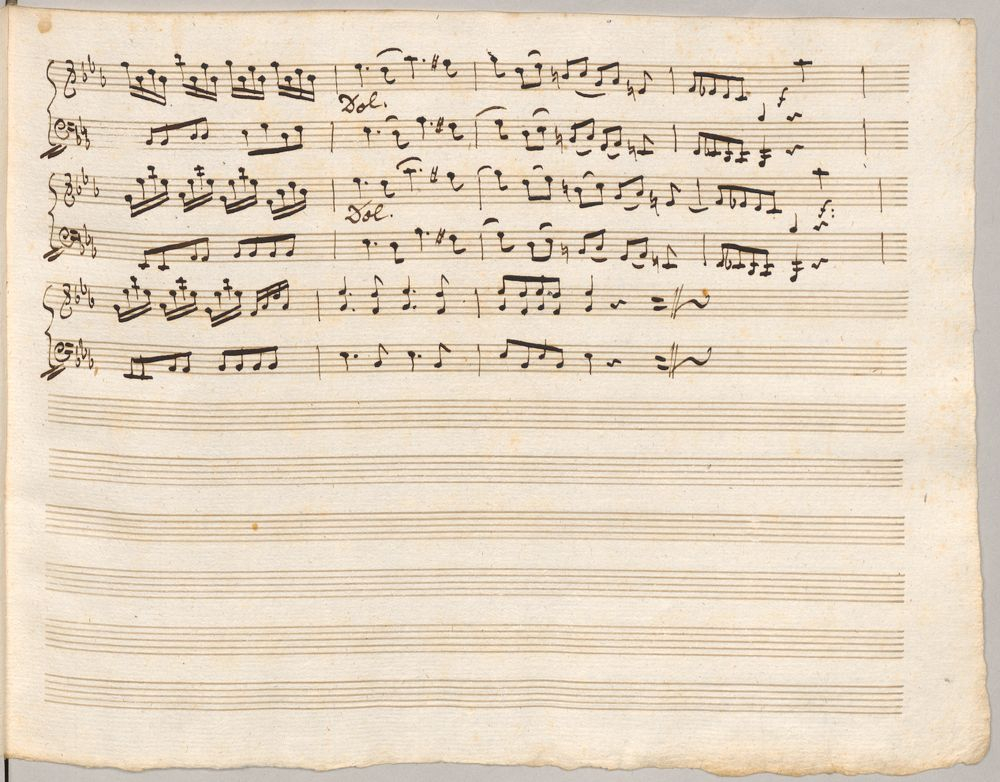 Dol.
f
Dol.
f: